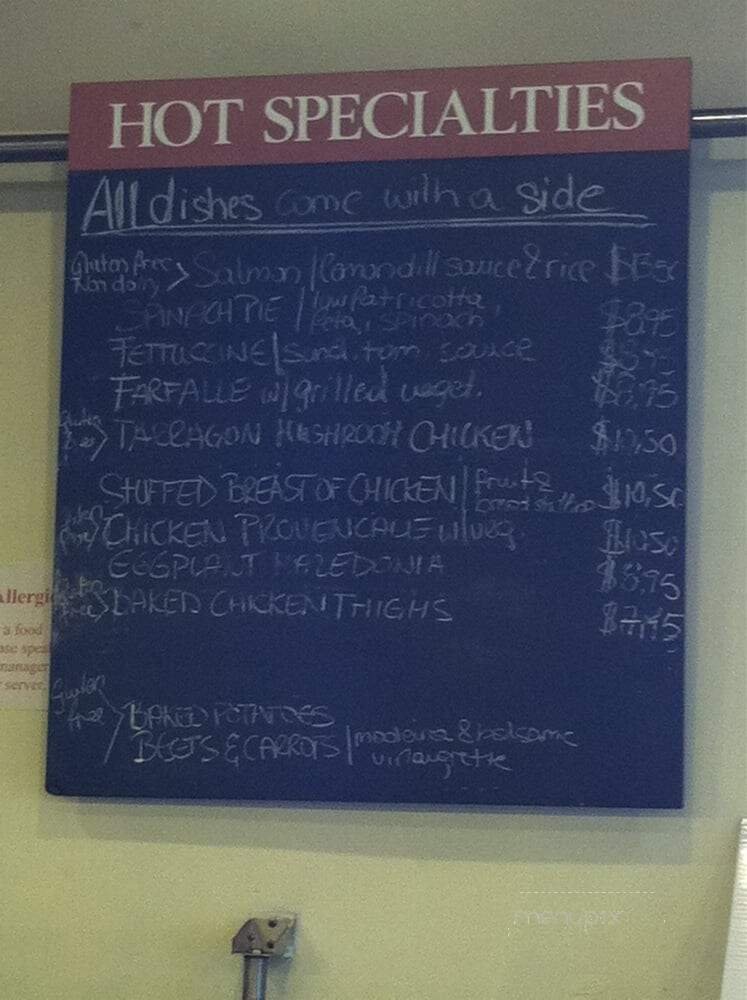 HOT SPECIALTIES
All dishes come with a side
Gluten free
Non dairy > Salmon / Lemon dill sauce & rice
SPINACH PIE / low fat ricotta, $8.95
feta, spinach
FETTUCCINE | sund. tom. sauce
FARFALLE w/ grilled veget. $8.95
Gluten
free > TARRAGON MUSHROOM CHICKEN $10,50
STUFFED BREAST OF CHICKEN | fruit & $10,50
bread stuffing
Gluten
free > CHICKEN PROVENCALE w/ veg. $10.50
EGGPLANT MAZEDONIA $8,95
Gluten
free > BAKED CHICKEN THIGHS
Gluten
free
BAKED POTATOES
BEETS & CARROTS | madeira & balsamic
vinaugrette
Allergi
a food
ase spea
manager
server.
menupix